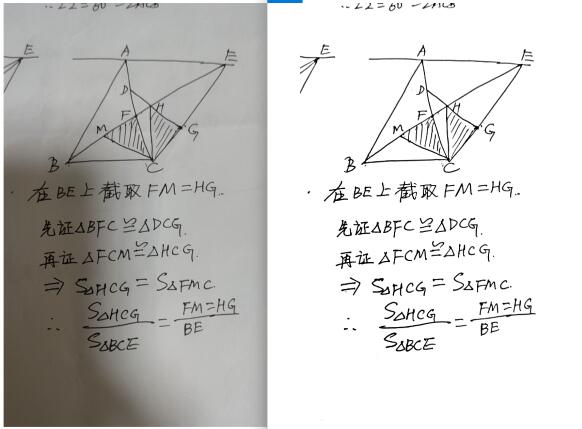 E
A
E
D
H
F
M
G
B
C
在BE上截取FM=HG.
先证△BFC≌△DCG.
再证△FCM≌△HCG.
⇒ S△HCG = S△FMC.
∴ S△HCG/S△BCE = FM=HG/BE
E
A
E
D
H
F
M
G
B
C
在BE上截取FM=HG.
先证△BFC≌△DCG.
再证△FCM≌△HCG.
⇒ S△HCG = S△FMC.
∴ S△HCG/S△BCE = FM=HG/BE